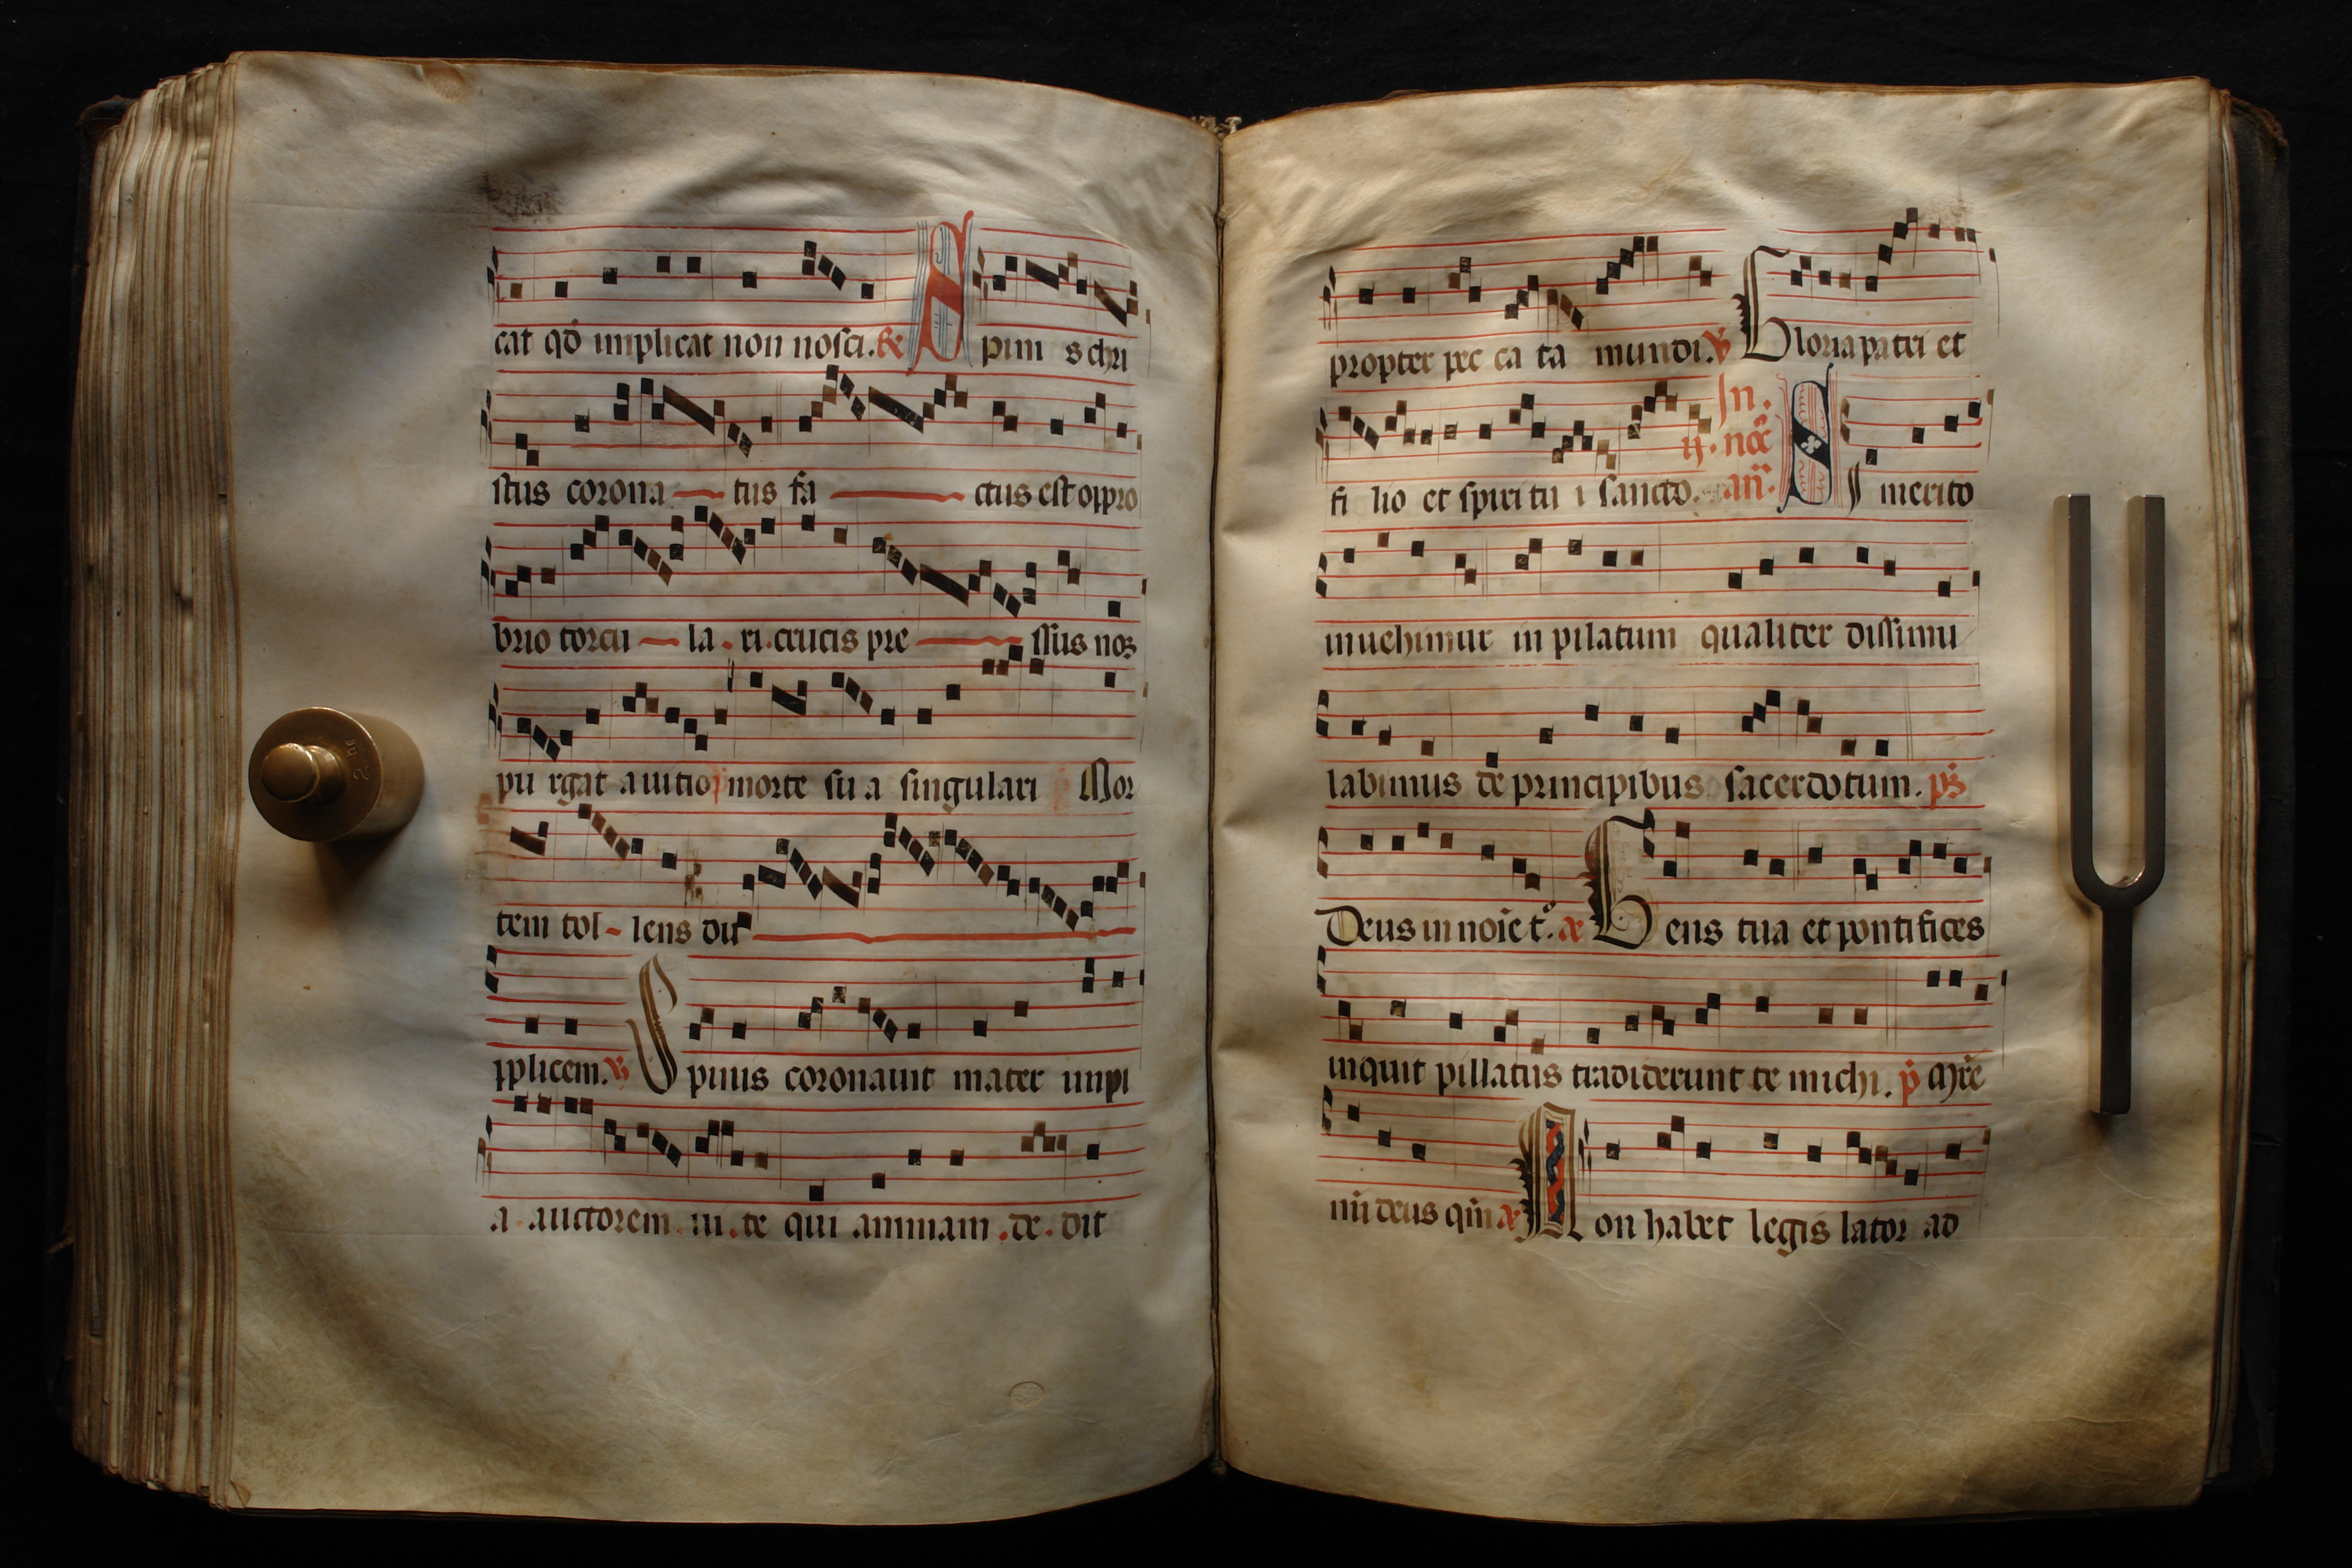 cat qd̄ implicat non nosci. R̃
Spini s chri
stus corona tus fa ctus est oppro
brio torcu la . ri . crucis pre ssus nos
pu rgat a uitio p̄ morte su a singulari Mor
tem tol - lens du
pplicem. ṽ Spinis coronauit mater impi
a . auctorem . ui . te qui animam . de . dit
propter pec ca ta mundi. ṽ Gloria patri et
fi lio et spiritu i sancto. In . ij . noc̄ an̄. Si merito
inuehimur in pilatum qualiter dissimu
labimus de principibus sacerdotum. ps̄
Deus in noīe t̊. æ Gens tua et pontifices
inquit pillatus tradiderunt te michi . p̄ Mr̄e
mī deus qm̄ æ Non habet legis lator ad